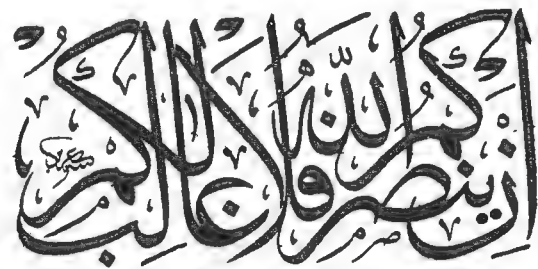 إِنْ يَنْصُرْكُمُ اللّٰهُ فَلَا غَالِبَ لَكُمْ